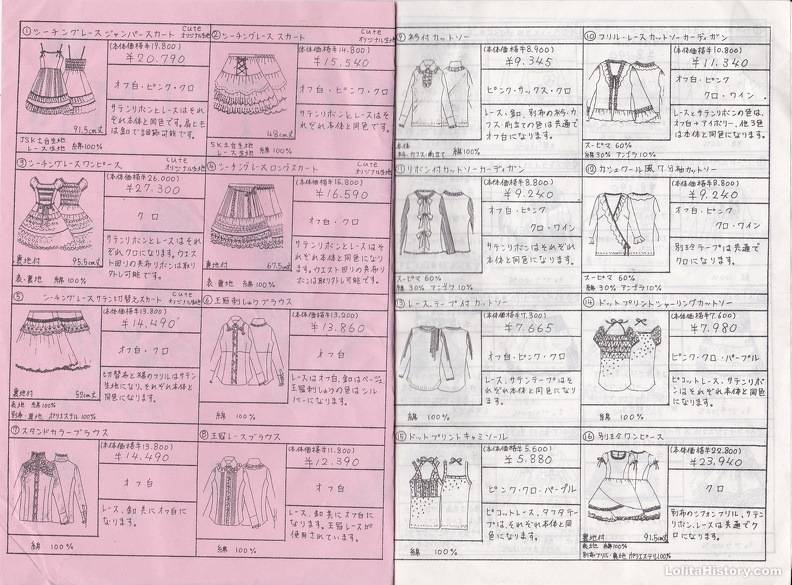 ① シーチングレースジャンパースカート
Cute
オリジナル生地
(本体価格¥19.800)
¥20.790
オフ白・ピンク・クロ
サテンリボンとレースはそれ
ぞれ本体と同色です。肩ヒモ
は釦で調節可能です。
91.5cm丈
JSK土台生地
レース生地 綿100%
② シーチングレース スカート
Cute
オリジナル生地
(本体価格¥14.800)
¥15,540
オフ白・ピンク・クロ
サテンリボンとレースはそ
れぞれ本体と同色です。
48cm丈
SK土台生地
レース生地 綿100%
③ シーチングレースワンピース
Cute
オリジナル生地
(本体価格¥26.000)
¥27.300
クロ
サテンリボンとレースはそ
れぞれクロになります。
ウエスト回りの共布リボンは取り
外し可能です。
裏地付
95.5cm丈
表・裏地 綿100%
④ シーチングレースロングスカート
Cute
オリジナル生地
(本体価格¥15,800)
¥16.590
オフ白・クロ
サテンリボンとレースはそ
れぞれ本体と同色になり
ます。ウエスト回りの共布リ
ボンは取り外し可能です。
裏地付
67.5cm丈
表・裏地 綿100%
⑤ シーチングレースサテン切替えスカート
Cute
オリジナル生地
(本体価格¥13.800)
¥14.490
オフ白・クロ
切替布と裾のフリルはサテ
ン生地になり、それぞれ本体と
同色になります。
裏地付
52cm丈
表地 綿100%
別布・裏地 ポリエステル100%
⑥ 王冠刺しゅうブラウス
(本体価格¥13,200)
¥13.860
オフ白
レースはオフ白、釦はベージュ、
王冠刺しゅうの色はシル
バーになります。
綿 100%
⑦ スタンドカラーブラウス
(本体価格¥13.800)
¥14.490
オフ白
レース、釦共にオフ白に
なります。
綿 100%
⑧ 王冠レースブラウス
(本体価格¥11.800)
¥12.390
オフ白
レース、釦共にオフ白に
なります。王冠レースが
使用されています。
綿 100%
⑨ 衿付カットソー
(本体価格¥8.900)
¥9.345
ピンク・サックス・クロ
レース、釦、別布の衿・カ
フス・前立ての色は共通で
オフ白になります。
本体
衿・カフス・前立て 綿100%
⑩ フリル・レースカットソーカーディガン
(本体価格¥10.800)
¥11,340
オフ白・ピンク
クロ・ワイン
レースとサテンリボンの色は、
オフ白→アイボリー、他3色
は本体と同色になります。
スーピマ 60%
綿30% アンゴラ10%
⑪ リボン付カットソーカーディガン
(本体価格¥8.800)
¥9.240
オフ白・ピンク
クロ・ワイン
サテンリボンはそれぞれ
本体と同色になります。
スーピマ 60%
綿30% アンゴラ10%
⑫ カシュクール風7分袖カットソー
(本体価格¥8.800)
¥9.240
オフ白・ピンク
クロ・ワイン
別珍テープは共通で
クロになります。
スーピマ 60%
綿30% アンゴラ10%
⑬ レース、テープ付カットソー
(本体価格¥7,300)
¥7.665
オフ白・ピンク・クロ
レース、サテンテープはそ
れぞれ本体と同色に
なります。
綿 100%
⑭ ドットプリントシャーリングカットソー
(本体価格¥7.600)
¥7.980
ピンク・クロ・パープル
ピコットレース、サテンリボ
ンはそれぞれ本体と同色
になります。
綿 100%
⑮ ドットプリントキャミソール
(本体価格¥5,600)
¥5.880
ピンク・クロ・パープル
ピコットレース、タフタテー
プは、それぞれ本体と同
色になります。
綿 100%
⑯ 別珍ワンピース
(本体価格¥22.800)
¥23,940
クロ
別布のシフォンフリル、サテン
リボン、レースは共通でク
ロになります。
裏地付
91.5cm丈
表地 綿100%
別布フリル・裏地 ポリエステル100%
LolitaHistory.com